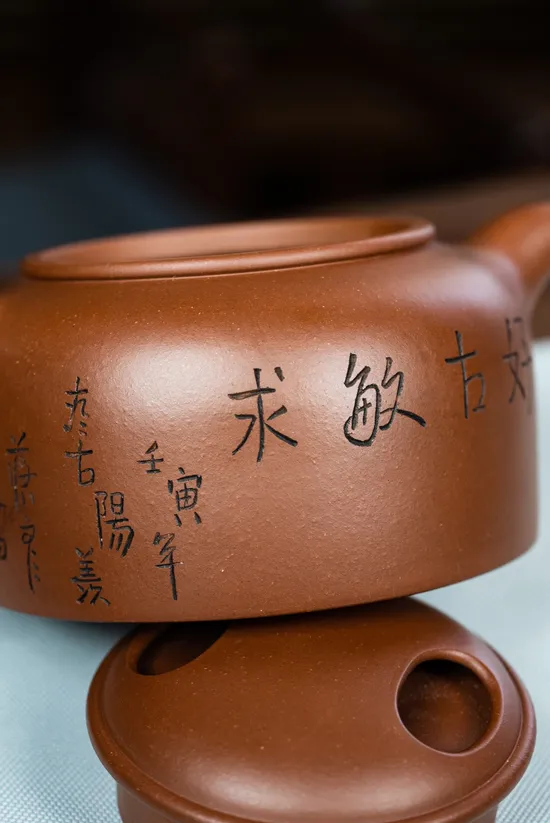 好古敏求
壬寅年
扵古陽羨